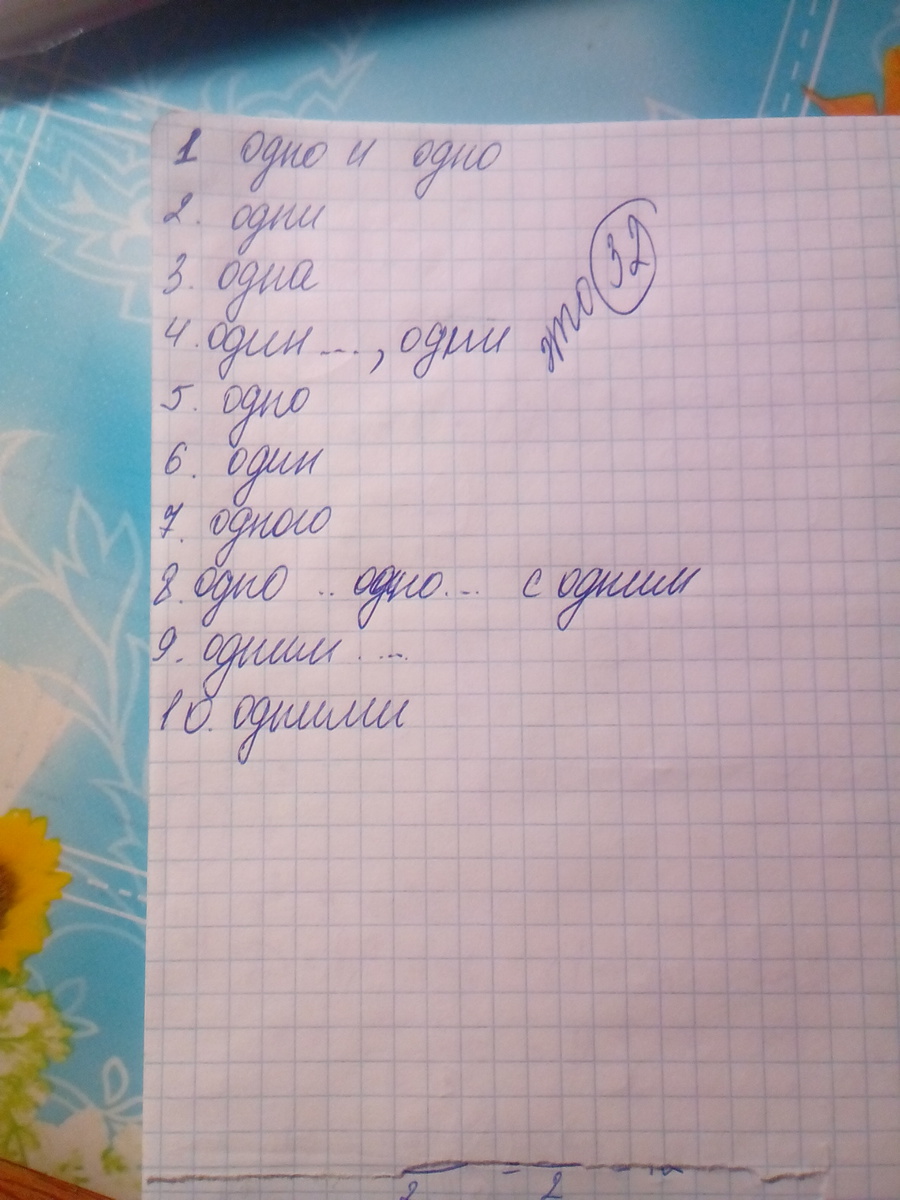 1 одно и одно
2. одни
3. одна
4. один ..., одни
это 32
5. одно
6. один
7. одного
8. одно .. одно... с одним
9. одним ....
10. одними
2 2